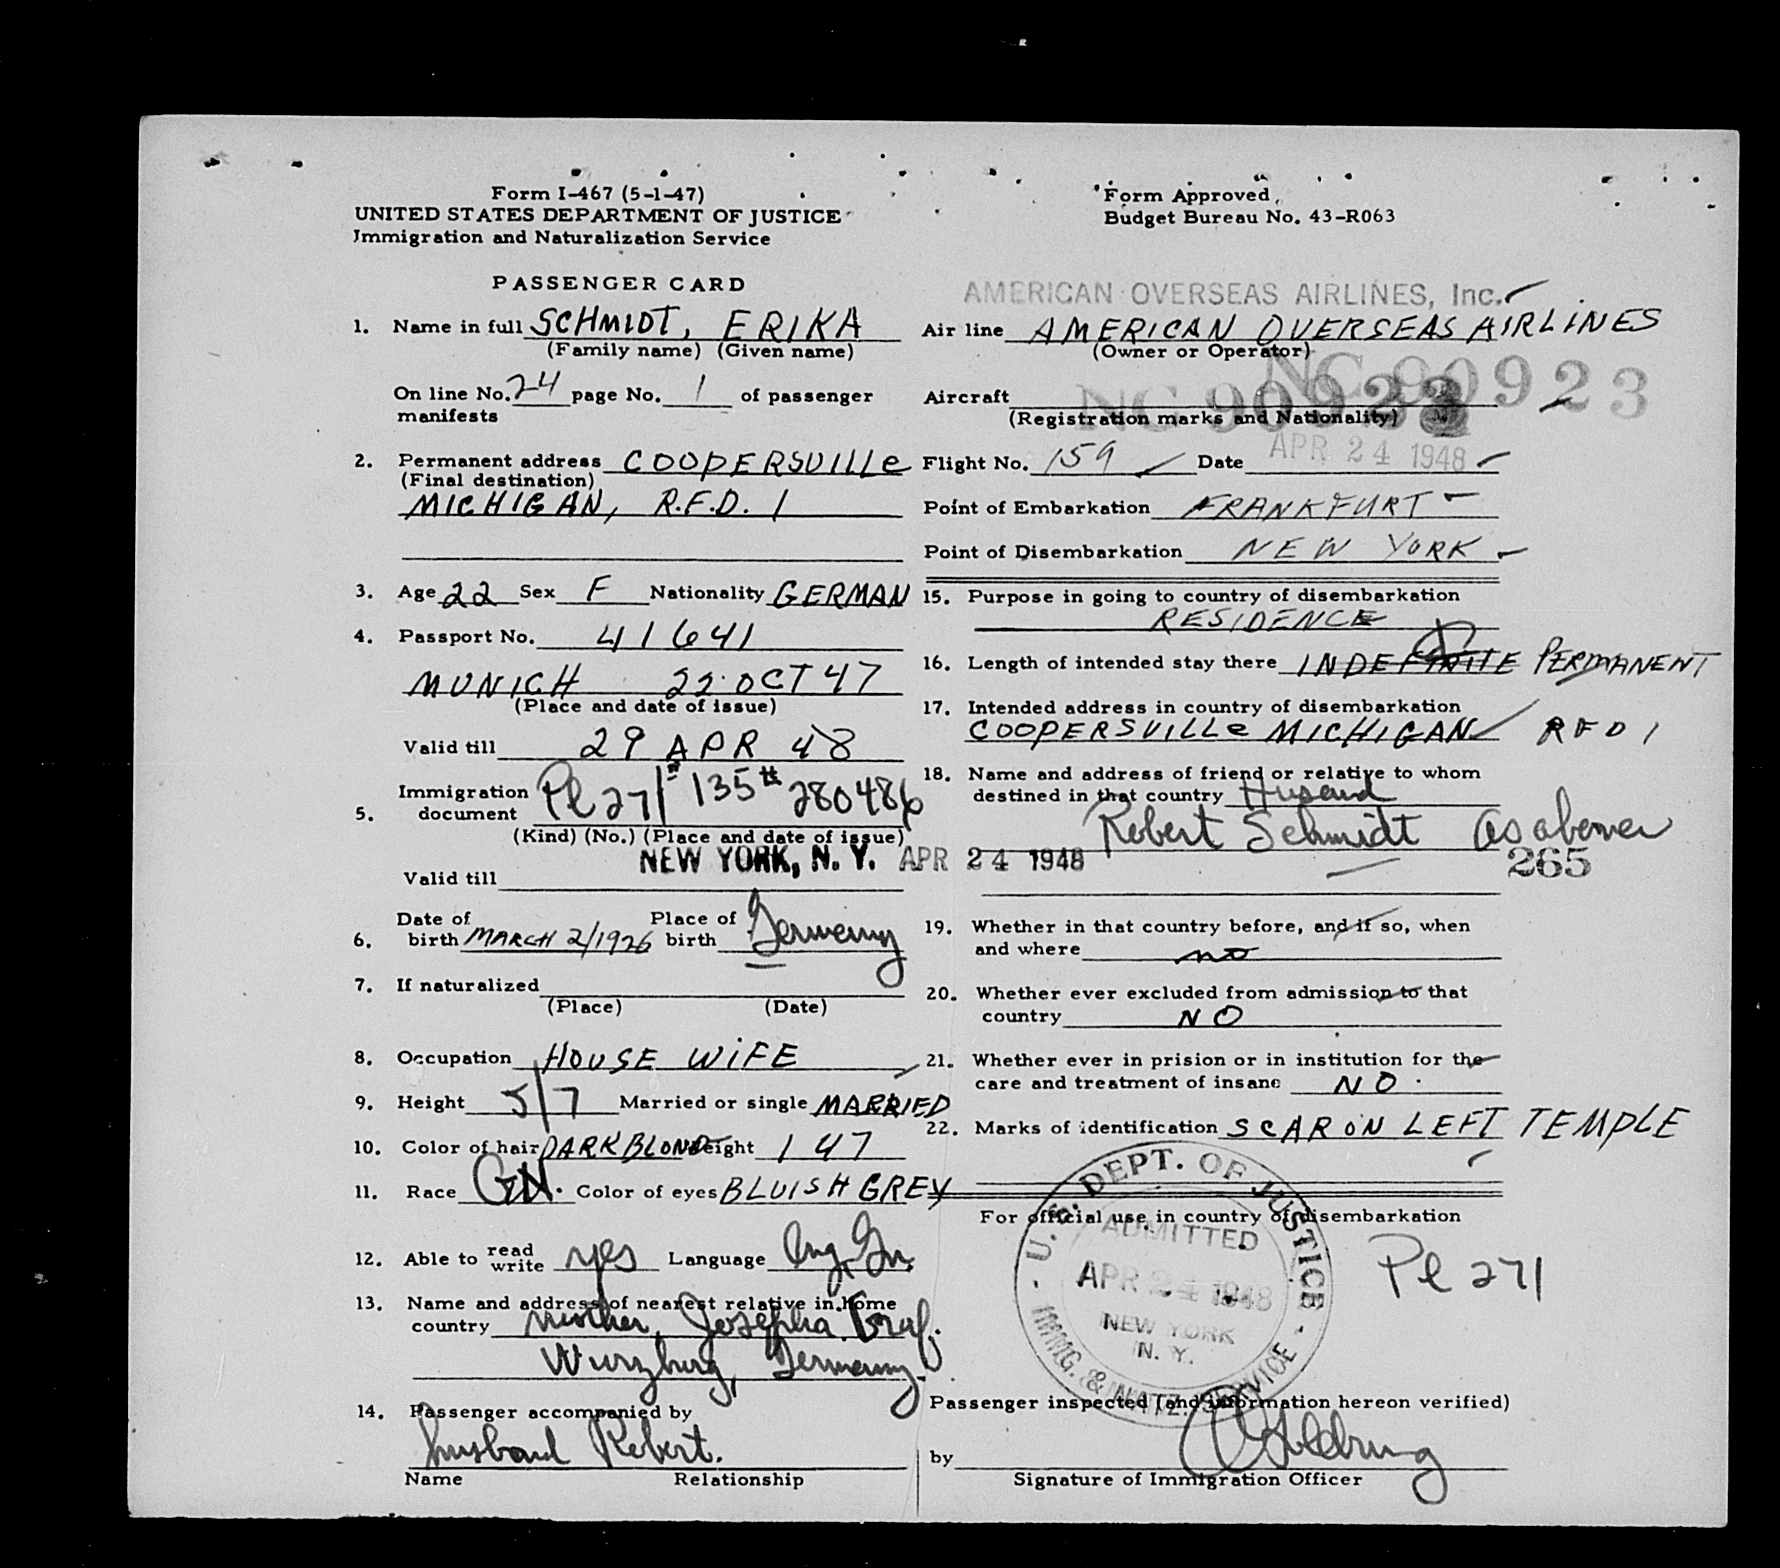 Form I-467 (5-1-47)
UNITED STATES DEPARTMENT OF JUSTICE
Immigration and Naturalization Service
Form Approved
Budget Bureau No. 43-R063
PASSENGER CARD
AMERICAN OVERSEAS AIRLINES, Inc.
1. Name in full SCHMIDT, ERIKA
(Family name) (Given name)
On line No. 24 page No. 1 of passenger
manifests
2. Permanent address COOPERSVILLE
(Final destination)
MICHIGAN, R.F.D. 1
3. Age 22 Sex F Nationality GERMAN
4. Passport No. 41641
MUNICH 22 OCT 47
(Place and date of issue)
Valid till 29 APR 48
Immigration
5. document Pl 271 135 280486
(Kind) (No.) (Place and date of issue)
NEW YORK, N. Y. APR 24 1948
Valid till
6. Date of birth MARCH 2/1926 Place of birth Germany
7. If naturalized
(Place) (Date)
8. Occupation HOUSE WIFE
9. Height 5/7 Married or single MARRIED
10. Color of hair DARK BLOND Weight 147
11. Race GN. Color of eyes BLUISH GREY
12. Able to read write yes Language Eng, Gn
13. Name and address of nearest relative in home
country mother, Josepha Graf.
Wurzburg, Germany.
14. Passenger accompanied by
husband Robert.
Name Relationship
Air line AMERICAN OVERSEAS AIRLINES
(Owner or Operator)
NC 90923
Aircraft NC 9092
(Registration marks and Nationality)
Flight No. 159 Date APR 24 1948
Point of Embarkation FRANKFURT
Point of Disembarkation NEW YORK
15. Purpose in going to country of disembarkation
RESIDENCE
16. Length of intended stay there INDEFINITE PERMANENT
17. Intended address in country of disembarkation
COOPERSVILLE MICHIGAN RFD 1
18. Name and address of friend or relative to whom
destined in that country Husband
Robert Schmidt as above
265
19. Whether in that country before, and if so, when
and where no
20. Whether ever excluded from admission to that
country NO
21. Whether ever in prision or in institution for the
care and treatment of insane NO
22. Marks of identification SCAR ON LEFT TEMPLE
For official use in country of disembarkation
U. S. DEPT. OF JUSTICE
ADMITTED
APR 24 1948
NEW YORK
N. Y.
IMMG. & NATZ. SERVICE
Pl 271
Passenger inspected (and information hereon verified)
by
Signature of Immigration Officer